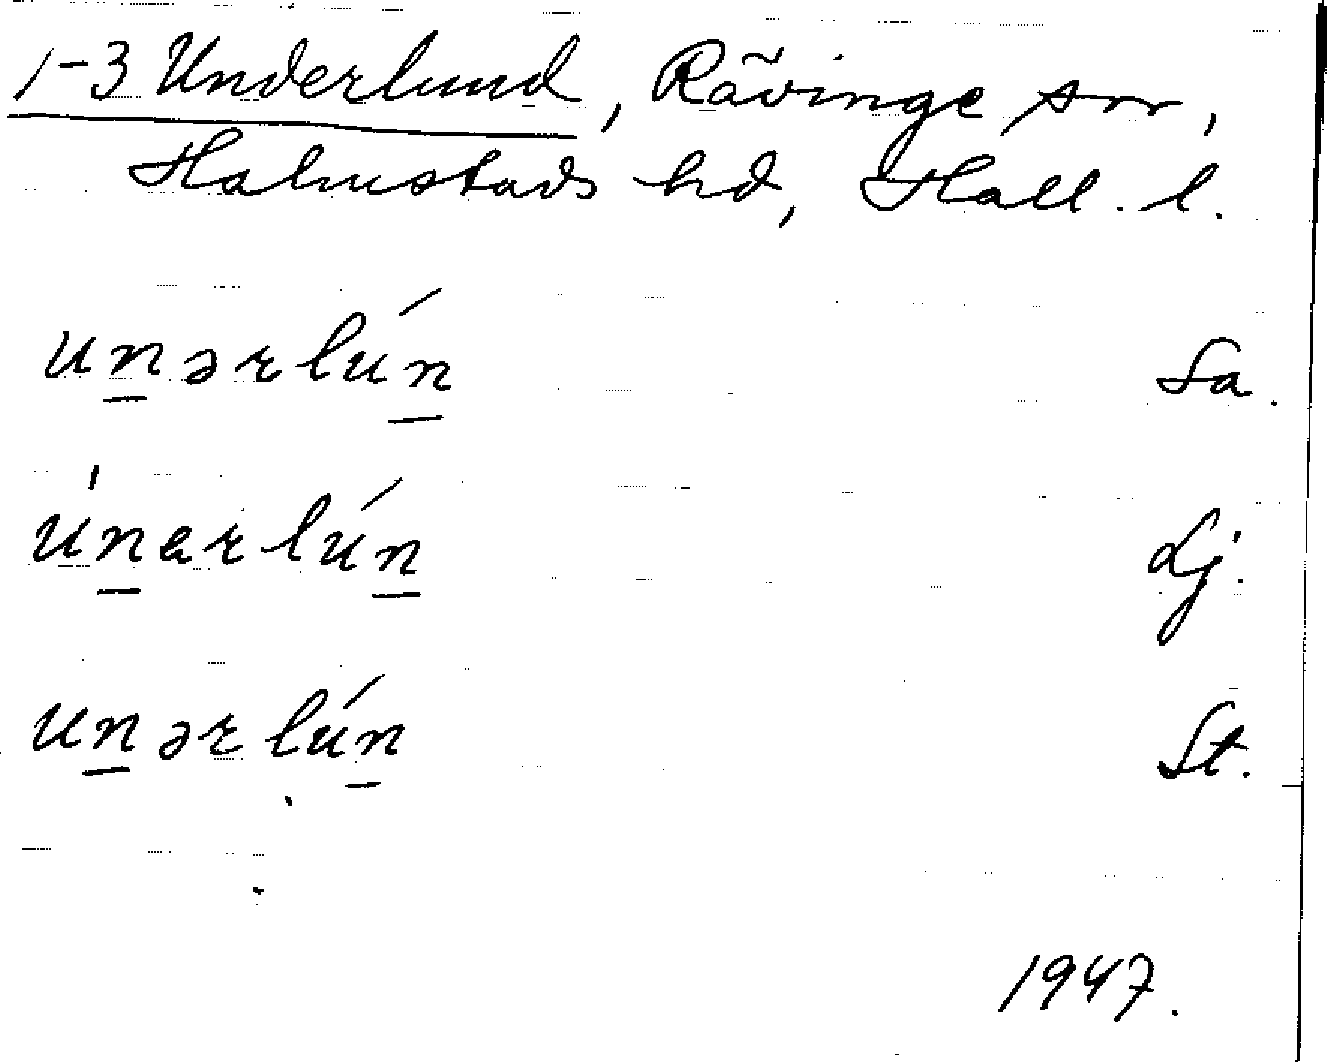 1-3 Underlund, Rävinge sn,
Halmstads hd, Hall. l.
un̲ərlún̲ Sa.
ún̲ɛrlún̲ Lj.
un̲ərlún̲ St.
1947.